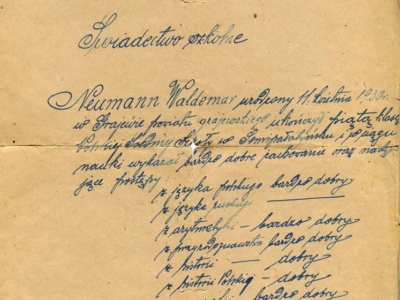 Świadectwo szkolne
Neumann Waldemar urodzony 11 kwietnia 1932 r.
w Grajewie powiatu grajewskiego ukończył piątą klasę
Polskiej Szkoły w Semipałatyńsku i w ciągu
nauki wykazał bardzo dobre zachowanie oraz następujące postępy:
z języka polskiego bardzo dobry
z języka
z arytmetyki – bardzo dobry
z przyrodoznawstwa bardzo dobry
z historii — dobry
z historii Polskiej – dobry
dobry